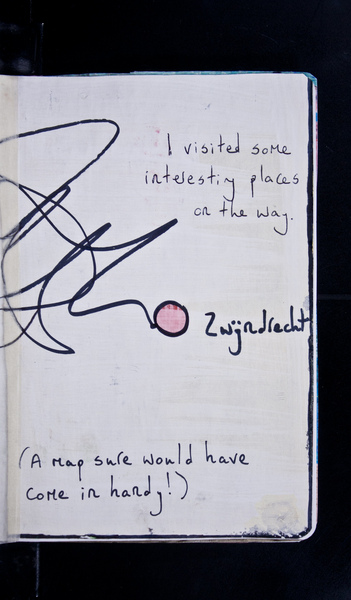 I visited some
interesting places
on the way.
Zwijndrecht
(A map sure would have
come in handy!)